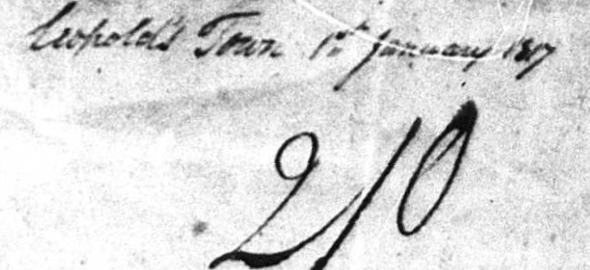 Leopold's Town 1st January 1817
2/0